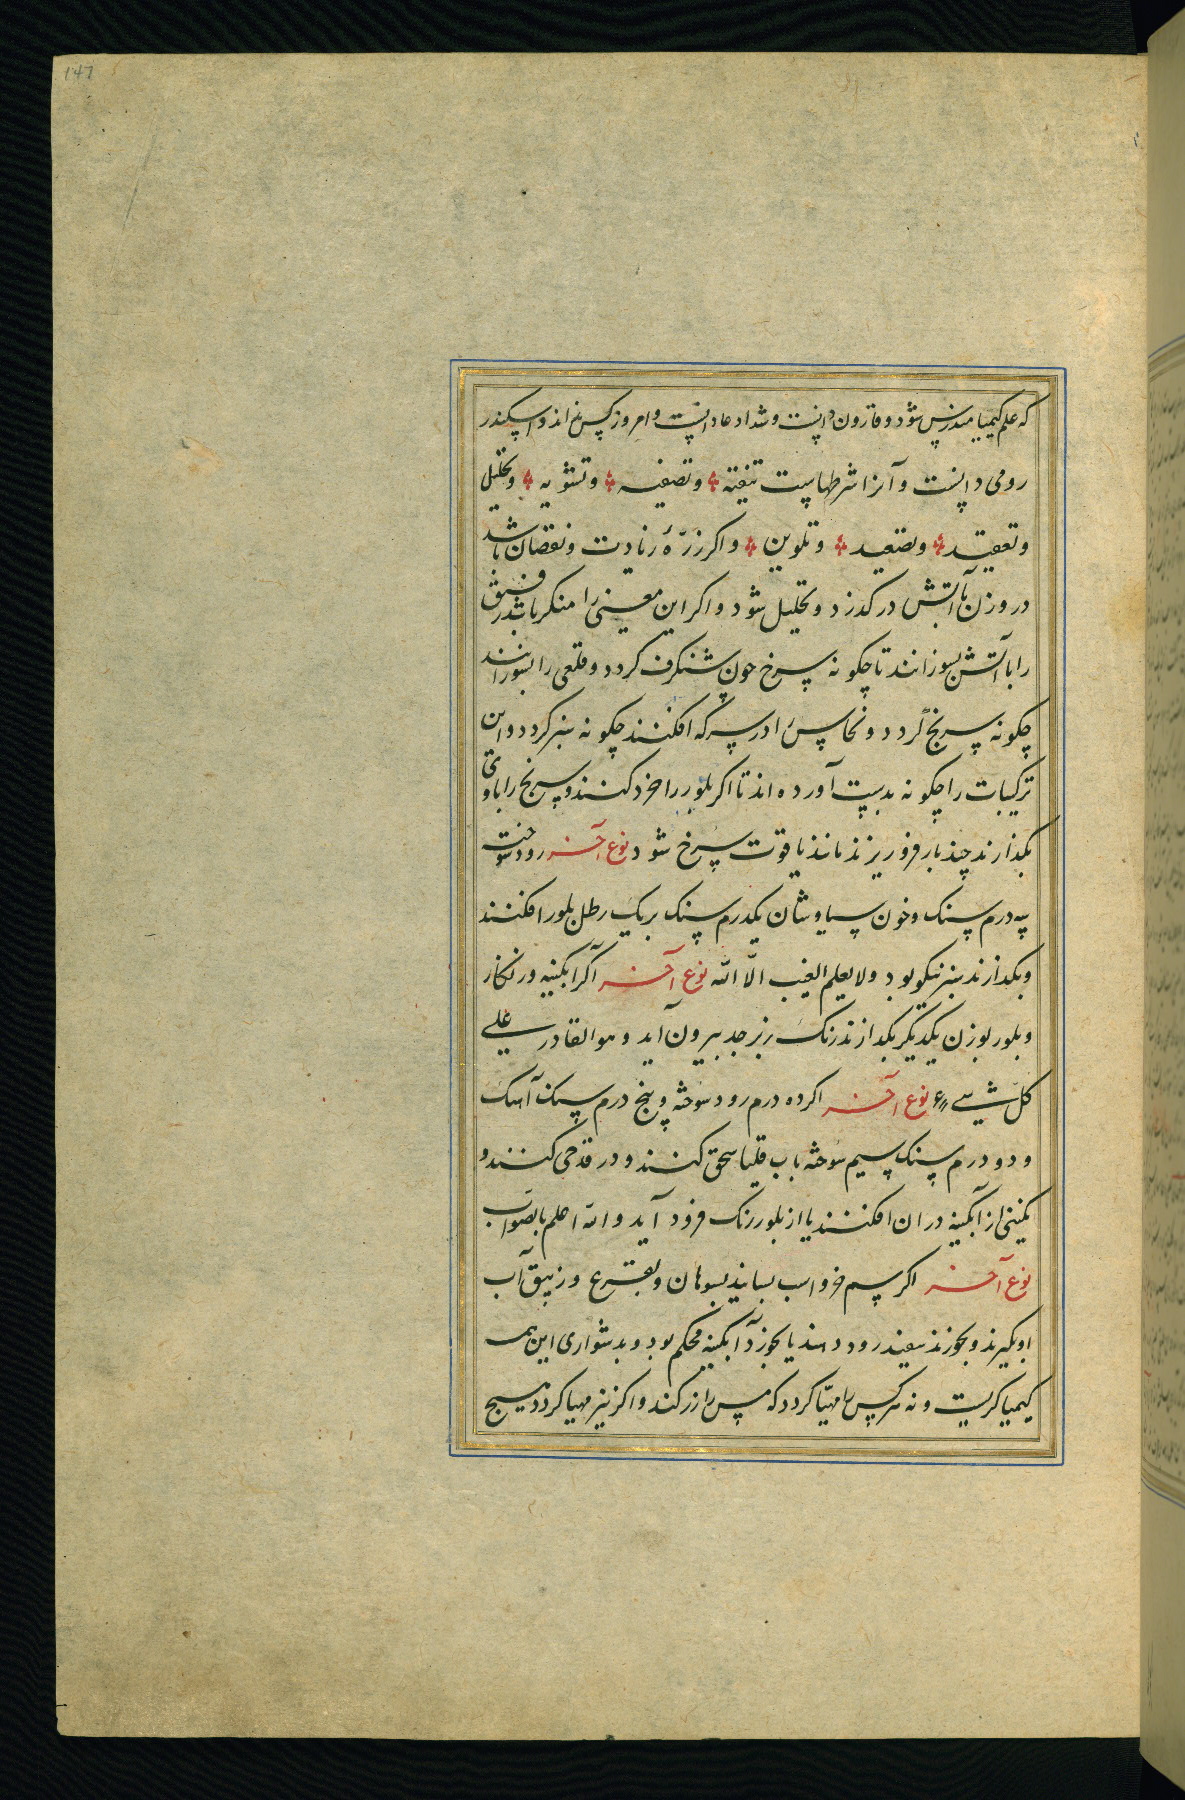 147
که علم کیمیا مندرس شود و قارون دانست و شداد عاد دانست و امروز کس نداند و اسکندر
رومی دانست و آنرا شرطهاست تنقیه و تصفیه و تشویه و تحلیل
و تعقید و تصعید و تلوین و اکر ذرّهٔ زیادت و نقصان باشد
در وزن یا آتش درکذرد و تحلیل شود و اکر این معنی را منکر باشد زیبق
را بآتش بسوزانند تا چکونه سرخ چون شنکرف کردد و قلعی را بسورانند
چکونه سرنج کردد و نحاس را در سرکه افکنند چکونه سبز کردد و این
ترکیبات را چکونه بدست آورده اند تا اکر بلور را خرد کنند و سرنج را با وی
بکدازند چند بار فرو ریزند مانند یاقوت سرخ شود نوع آخر رود سوخته
سه درم سنک و خون سیاوشان یکدرم سنک بر یک رطل بلور افکنند
و بکدازند سبز نیکو بود ولا یعلم الغیب الّا الله نوع آخر اکر ابکینه و زنکار
و بلور بوزن یکدیکر بکدازند زنک زبرجد بیرون آید و هو القادر علی
کل شیء نوع آخر اکر ده درم رود سوخته و پنج درم سنک آهک
و دو درم سنک سیم سوخته باب قلیا سحق کنند و در قدحی کنند و
نکینی از آبکینه در ان افکنند یا از بلور رنک فرود آید و الله اعلم بالصواب
نوع آخر اکر سم خر و اسب بسایند بسوهان و بقرع و زیبق آب
او بکیرند و بخورند سفیدرو دهند یا بخورد آبکینه محکم بود و بدشواری این همه
کیمیاکریست و نه هر کس را مهیّا کردد که مس را زر کند و اکر نیز مهیا کردد هیچ